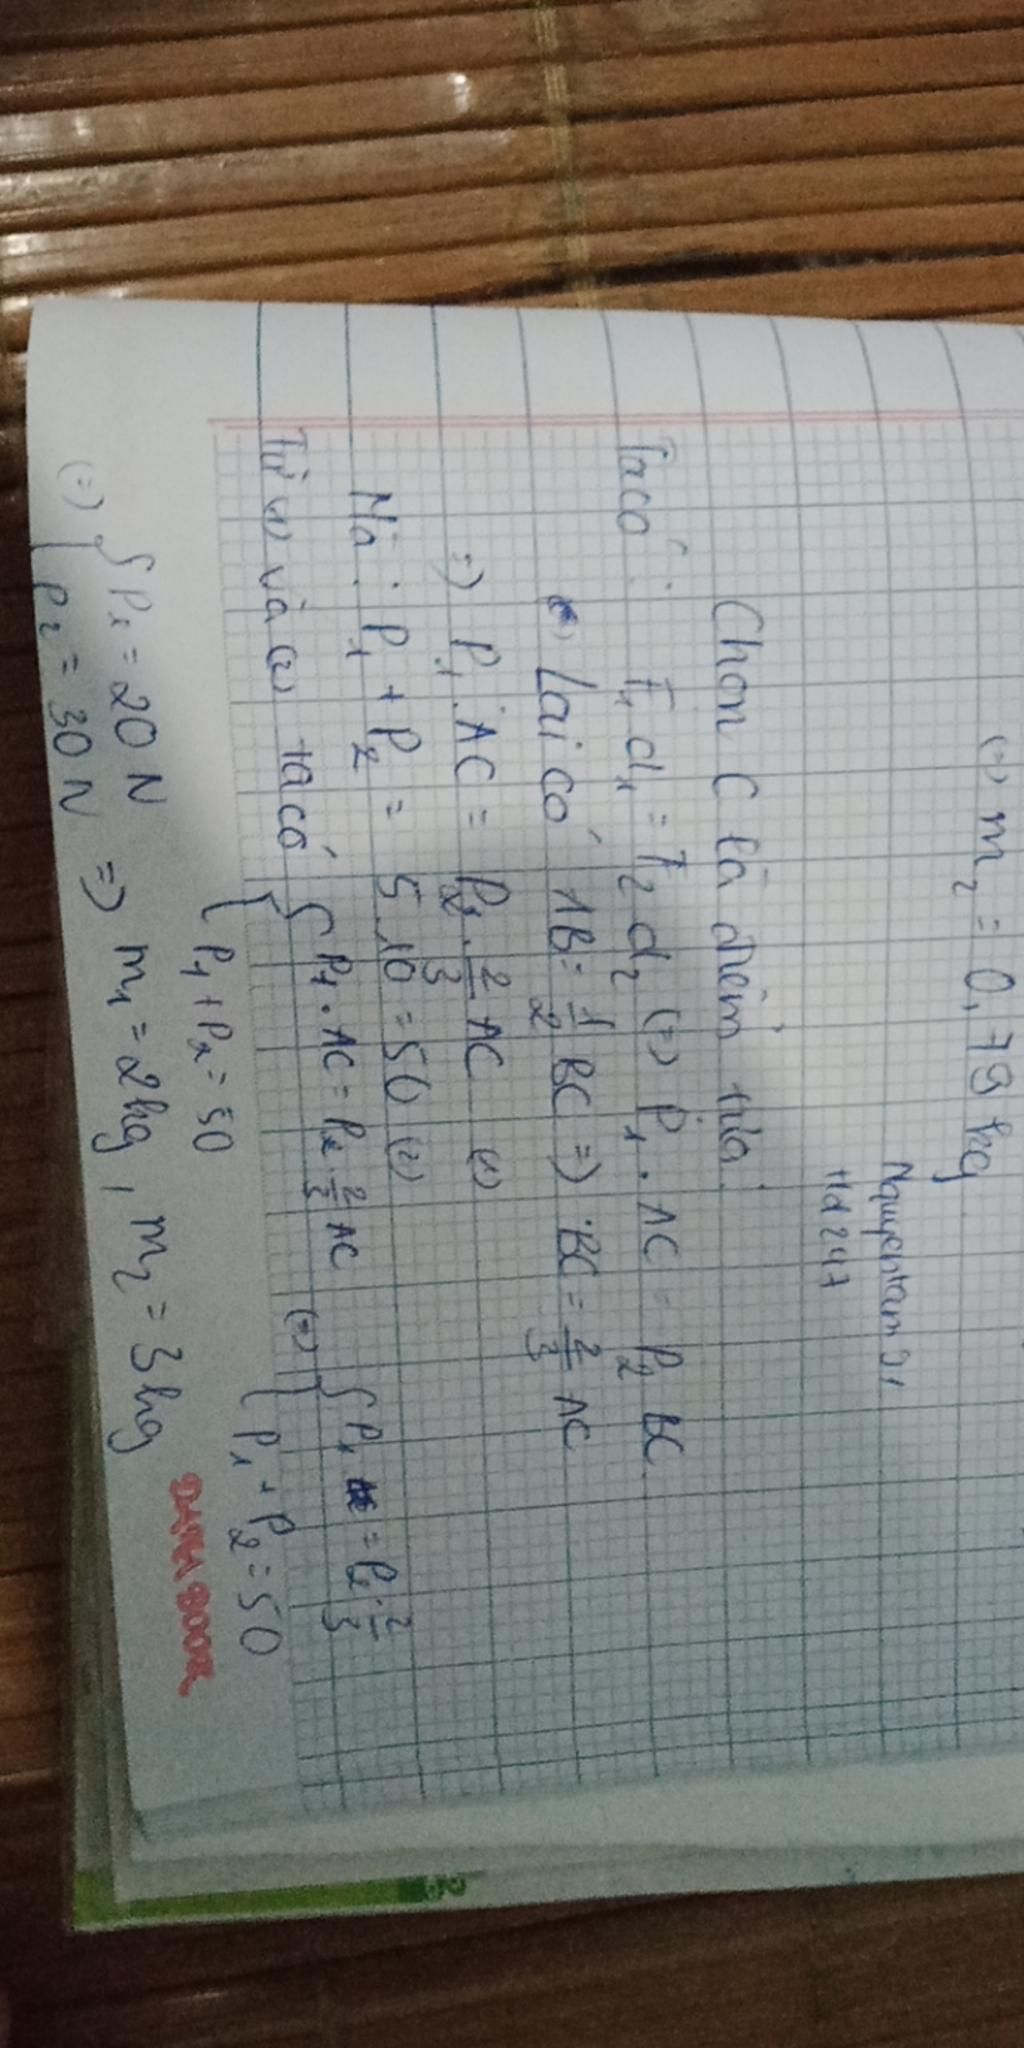 (=) m₂ = 0,79 kg
Nguyentam21
Hd247
Chọn C là điểm tựa.
Ta có: F₁ d₁ = F₂ d₂ (=) P₁ . AC = P₂ BC
Lại có AB = 1/2 BC => BC = 2/3 AC
=) P₁ . AC = P₂ . 2/3 AC (1)
Mà: P₁ + P₂ = 5.10 = 50 (2)
Từ (1) và (2) ta có { P₁ . AC = P₂ . 2/3 AC (=) { P₁ = P₂ . 2/3
{ P₁ + P₂ = 50 { P₁ + P₂ = 50
(=) { P₁ = 20 N
{ P₂ = 30 N => m₁ = 2kg, m₂ = 3kg